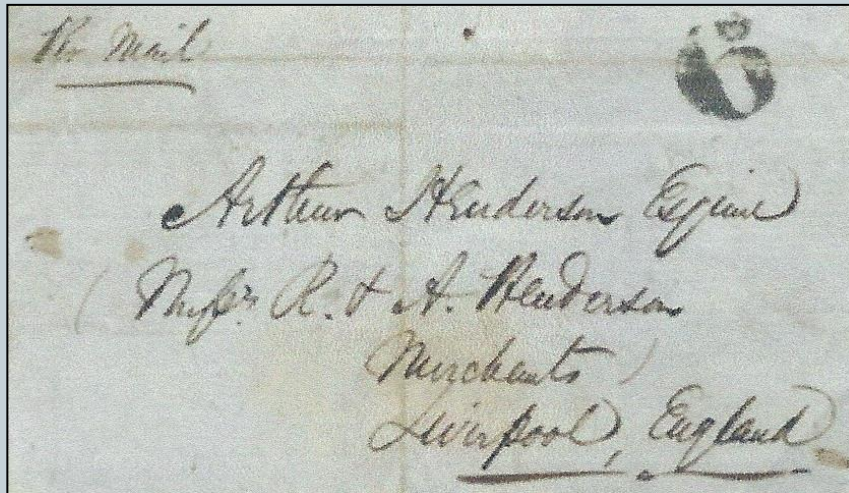 Per Mail
6
Arthur Henderson Esquire
(Messrs R. & A. Henderson
Merchants)
Liverpool, England